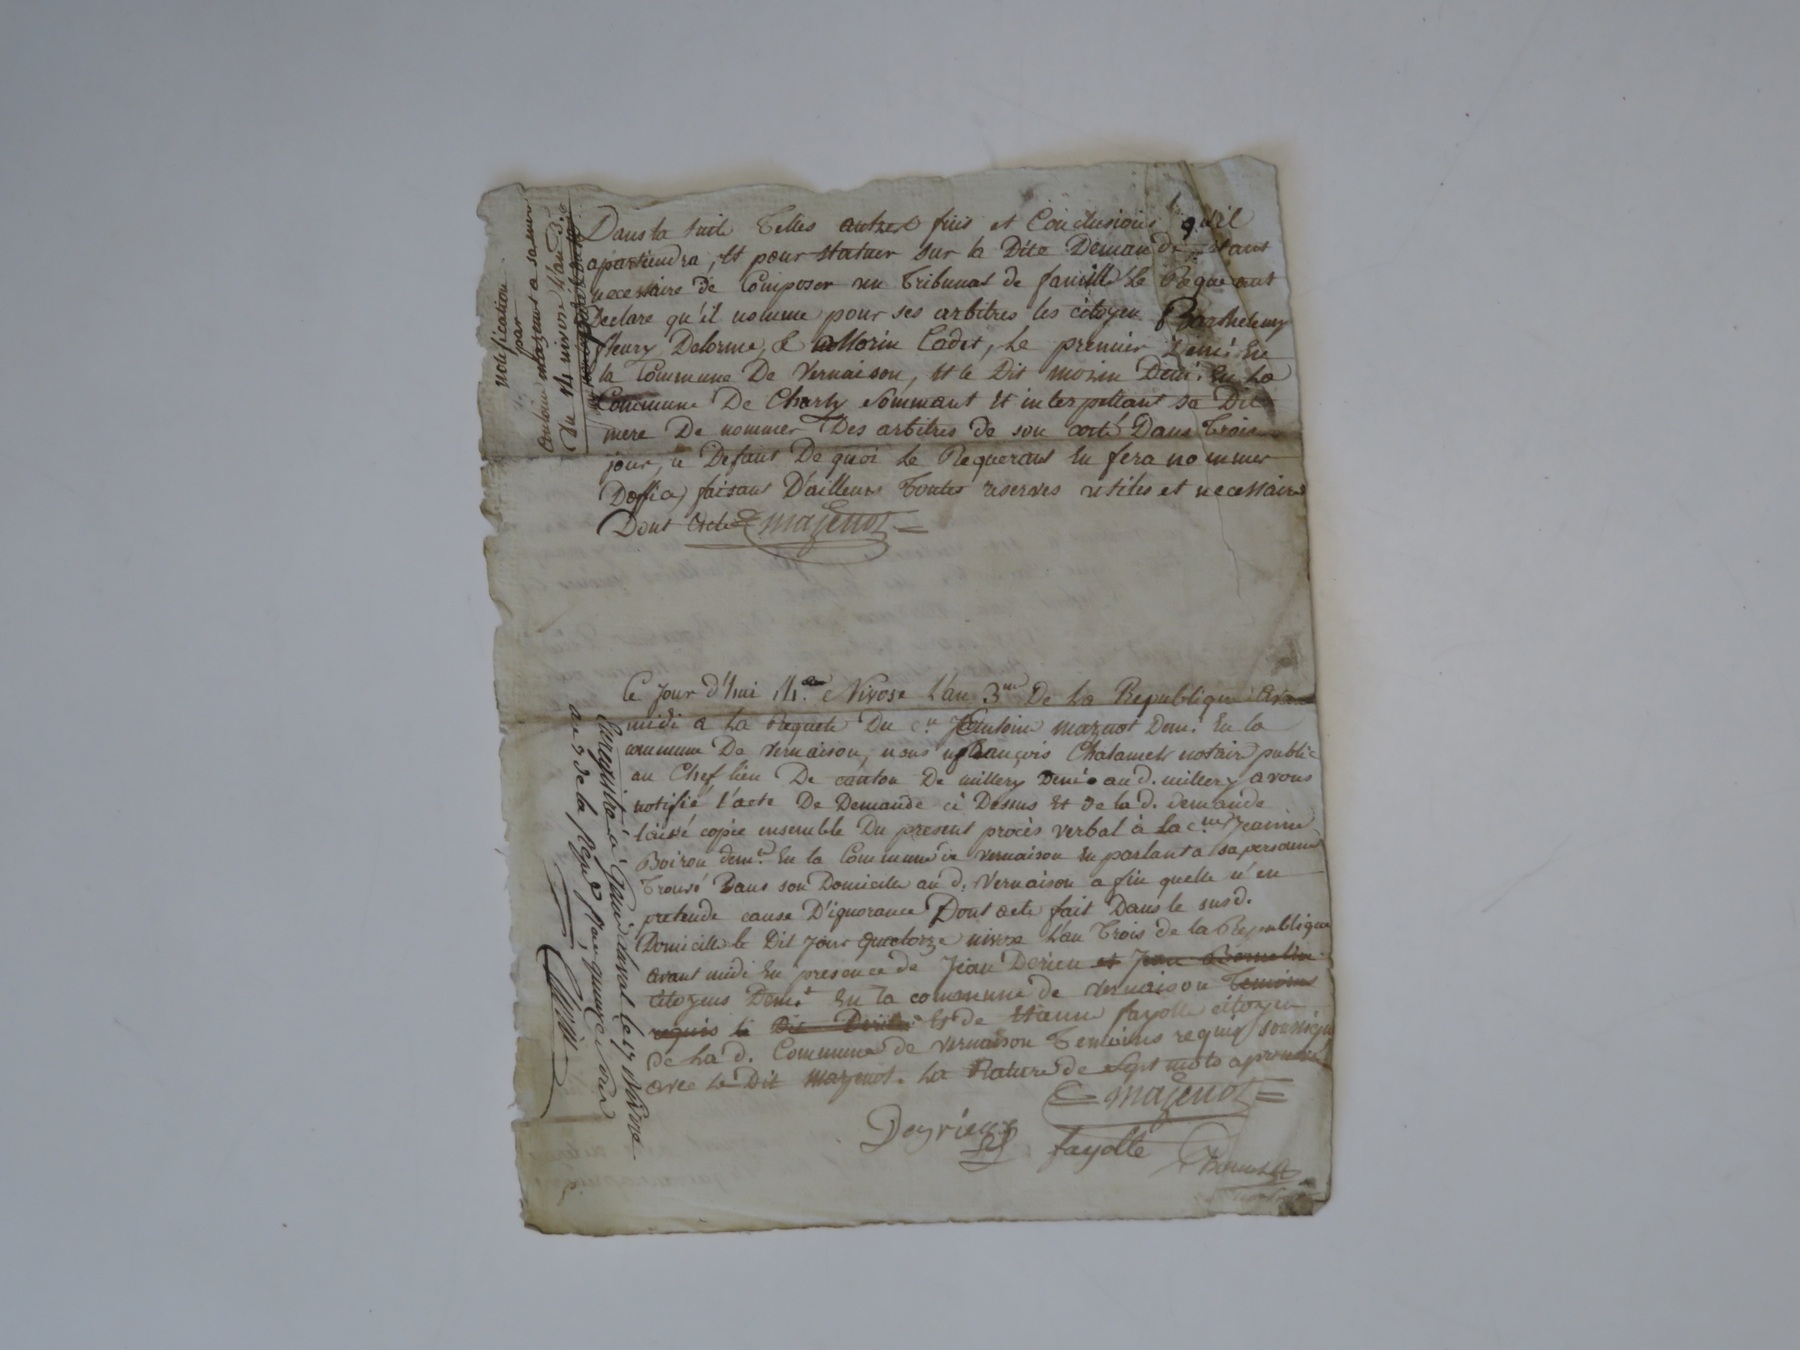 notification
par
antoine mazenot a sa mere
du 14 nivose l'an 3.e
Dans la suite Telles autres fins et Conclusions qu'il
apartiendra, Et pour statuer sur la Dite Demande Etant
necessaire de Composer un Tribunal de famille Le Requerant
Declare qu'il nomme pour ses arbitres les citoyen Barthelemy
fleury Delorme, & Morin Cadet, Le premier Demt En
la Commune De Vernaison, Et le Dit morin Demt En La
Commune De Charly Sommant Et interpellant sa Dite
mere De nommer Des arbitres de son coté Dans Trois
jour, a Defaut De quoi Le Requerant En fera nommer
Doffice, faisant D'ailleurs Toutes reserves utiles et necessaires
Dont Acte mazenot
Ce Jour d'hui 14.e Nivose L'an 3me De La Republique Avant
midi a La Requete Du c.n Antoine mazenot Demt En la
commune De Vernaison, nous françois Chalamel notaire public
au Chef lieu De canton De millery Demt au d. millery avons
notifié l'acte De Demande ci Dessus Et de la d. demande
laissé copie ensemble Du present procès verbal à La c.ne Jeanne
Boiron demt En la Commune de Vernaison En parlant a sa personne
Trouvé Dans son Domicile au d. Vernaison a fin quelle n'en
pretende cause D'ignorance Dont acte fait Dans le susd.
Domicile le Dit Jour Quatorze nivose L'an Trois de la Republique
avant midi En presence de Jean Derieu et Jean
citoyens Demt En la commune de Vernaison Temoins
requis le Dit Et de Etienne fayolle citoyen
de La d. Commune de Vernaison Temoins requis soussignés
avec Le Dit mazenot. La Rature de Sept mots aprouvé
mazenot
Deyrieux fayolle
Enregistré à Genis Laval le 17 Nivose
an 3 de la Repub.